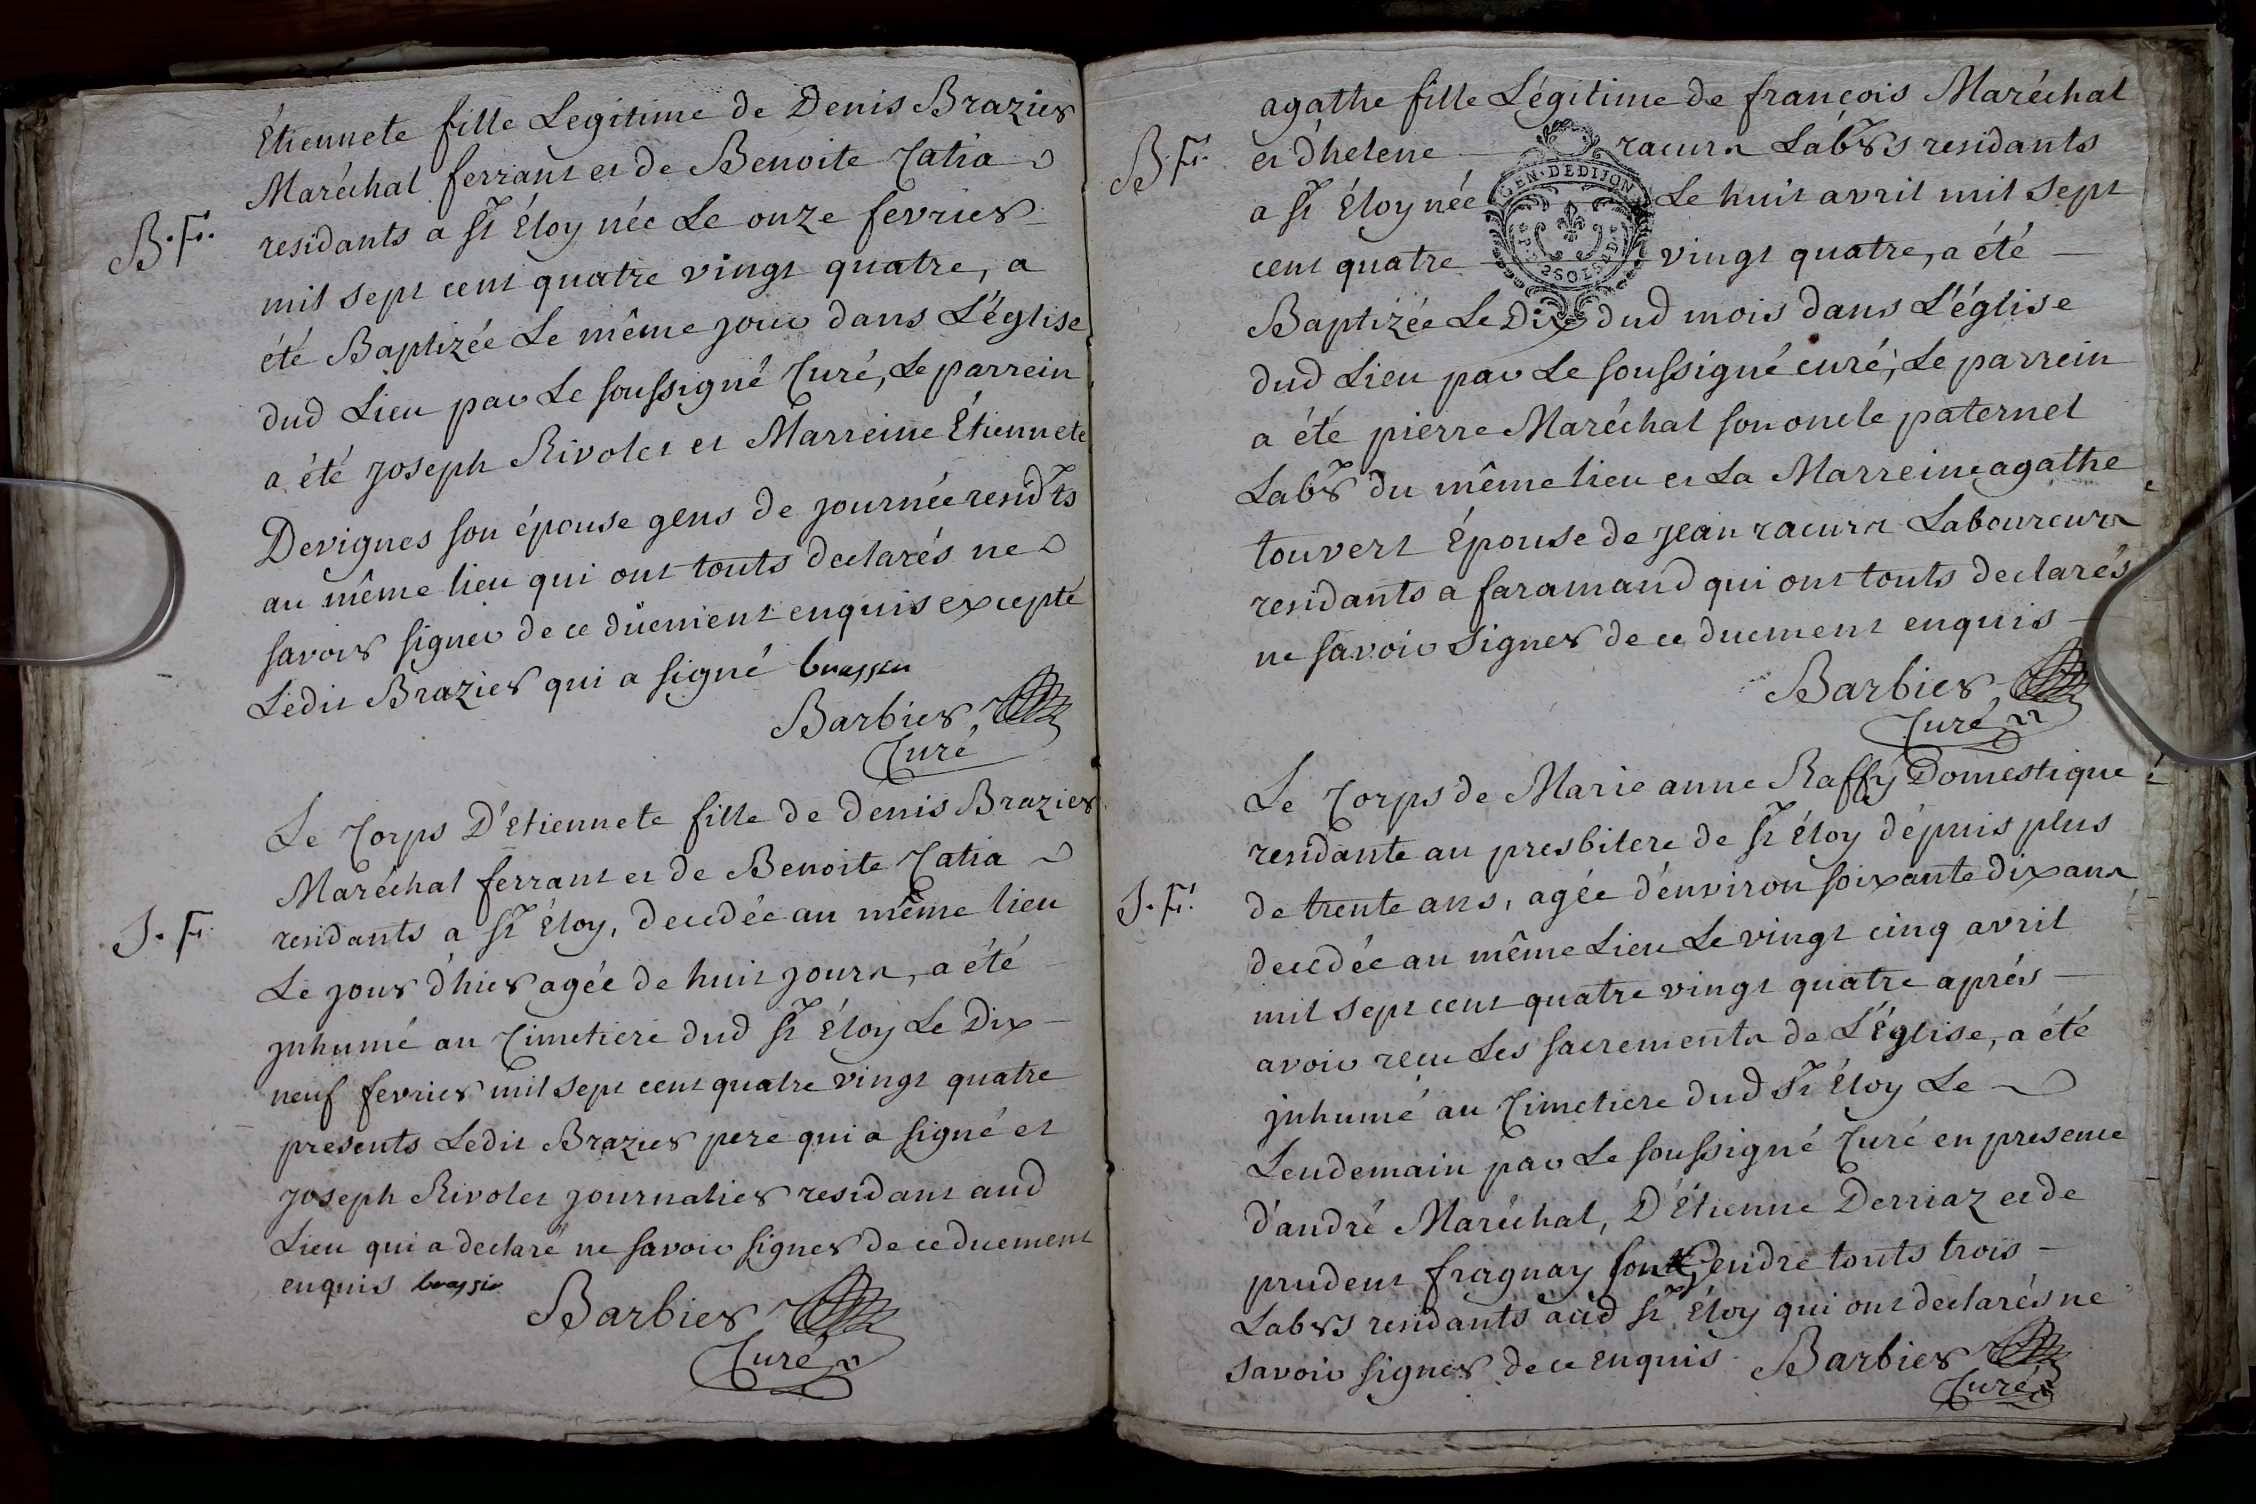 Étiennete fille Legitime de Denis Brazier
Maréchal ferrant et de Benoite Catia
B. F.
residants a St Éloy née Le onze fevrier
mil sept cent quatre vingt quatre, a
été Baptizée Le même jour dans L'église
dud Lieu par Le soussigné Curé, Le parrein
a été joseph Rivolet et Marreine Étiennete
Devignes son épouse gens de journée residts
au même lieu qui ont touts declarés ne
savoir signer de ce düement enquis excepté
Ledit Brazier qui a signé
Barbier
Curé
Le Corps D'Etiennete fille de denis Brazier
Maréchal ferrant et de Benoite Catia
J. F.
residants a St Éloy, decedée au même lieu
Le jour d'hier agée de huit jours, a été
jnhumé au Cimetiere dud St Éloy Le Dix
neuf fevrier mil sept cent quatre vingt quatre
presents Ledit Brazier pere qui a signé et
joseph Rivolet journalier residant aud
Lieu qui a declaré ne savoir signer de ce duement
enquis
Barbier
Curé
agathe fille Légitime de françois Maréchal
B. F.
et d'helene racurt Labrs residants
a St Éloy née Le huit avril mil sept
cent quatre vingt quatre, a été
GEN. DE DIJON
2 SOLS
Baptizée Le Dix dud mois dans L'église
dud Lieu par Le soussigné curé, Le parrein
a été pierre Maréchal son oncle paternel
Labr du même lieu et La Marreine agathe
touvert Épouse de jean racurt Laboureurs
residants a faramand qui ont touts declarés
ne savoir signer de ce duement enquis
Barbier
Curé
Le Corps de Marie anne Raffy Domestique
residante au presbitere de St Éloy dépuis plus
J. F.
de trente ans, agée d'environ soixante dix ans
decedée au même Lieu Le vingt cinq avril
mil sept cent quatre vingt quatre aprés
avoir recu Les sacrements de L'Église, a été
jnhumé au Cimetiere dud St Éloy Le
Lendemain par Le soussigné Curé en presence
d'andré Maréchal, D'Étienne Derriaz et de
prudent fragnay son gendre touts trois
Labrs residants aud St Éloy qui ont declarés ne
savoir signer de ce enquis
Barbier
Curé